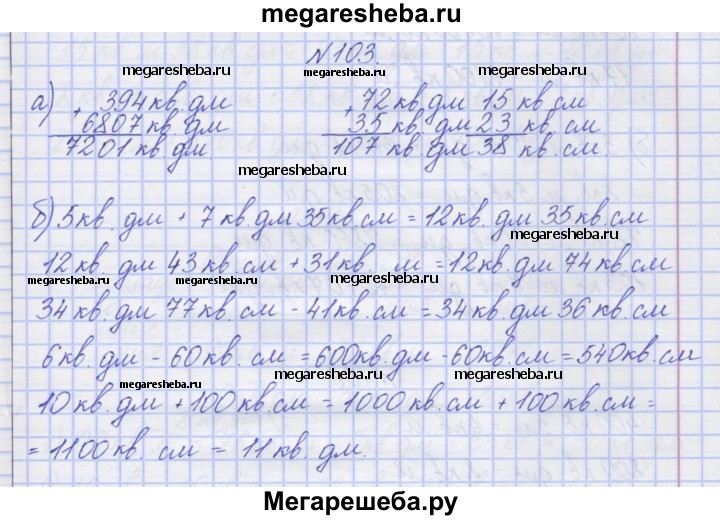 megaresheba.ru
N103.
megaresheba.ru megaresheba.ru
а) + 394 кв. дм + 72 кв. дм 15 кв. см
6807 кв. дм 35 кв. дм 23 кв. см
7201 кв. дм 107 кв. дм 38 кв. см
megaresheba.ru megaresheba.ru
б) 5 кв. дм + 7 кв. дм 35 кв. см = 12 кв. дм 35 кв. см
12 кв. дм 43 кв. см + 31 кв. м = 12 кв. дм 74 кв. см
megaresheba.ru megaresheba.ru
34 кв. дм 77 кв. см - 41 кв. см = 34 кв. дм 36 кв. см
6 кв. дм - 60 кв. см = 600 кв. дм - 60 кв. см = 540 кв. см
megaresheba.ru megaresheba.ru
10 кв. дм + 100 кв. см = 1000 кв. см + 100 кв. см =
= 1100 кв. см = 11 кв. дм.
Мегарешеба.ру